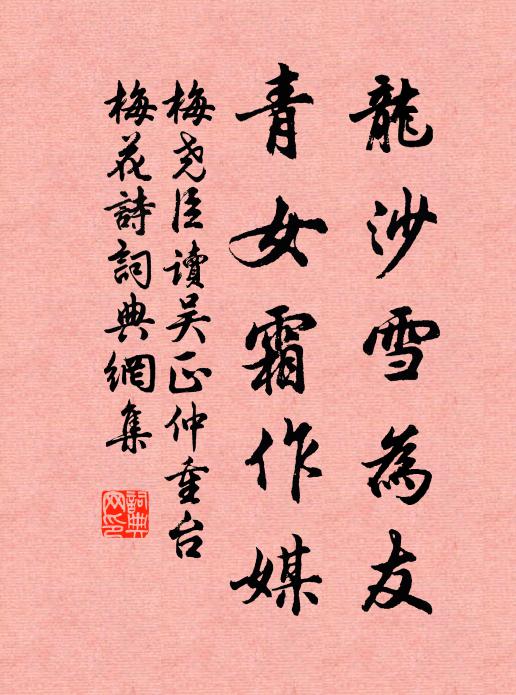 龍沙雪為友
青女霜作媒
梅堯臣讀吴正仲重台
梅花詩詞典網集
詞典
网印